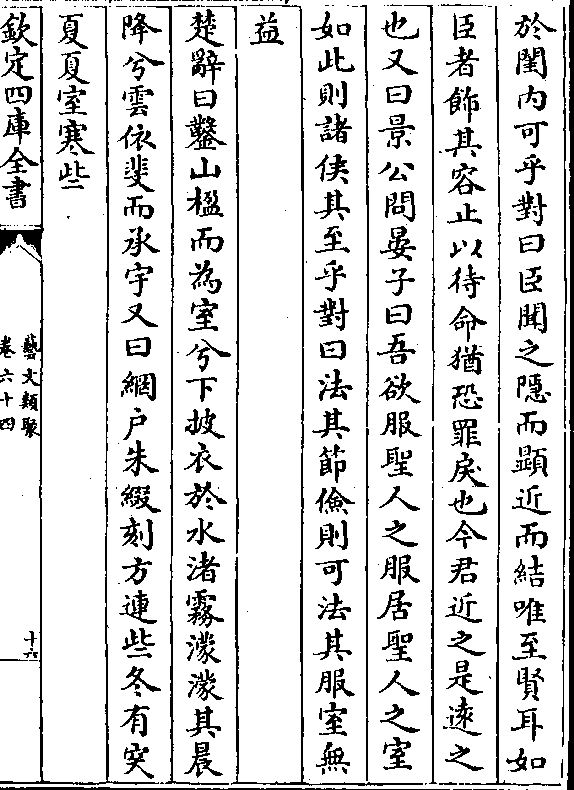 於閨内可乎對曰臣聞之隱而顯近而結唯至賢耳如
臣者飾其容止以待命猶恐罪戾也今君近之是逺之
也又曰景公問晏子曰吾欲服聖人之服居聖人之室
如此則諸侯其至乎對曰法其節儉則可法其服室無
益
楚辭曰鑿山楹而為室兮下披衣於水渚霧濛濛其晨
降兮雲依斐而承宇又曰網户朱綴刻方連些冬有突
夏夏室寒些
欽定四庫全書
藝文類聚
卷六十四
十六